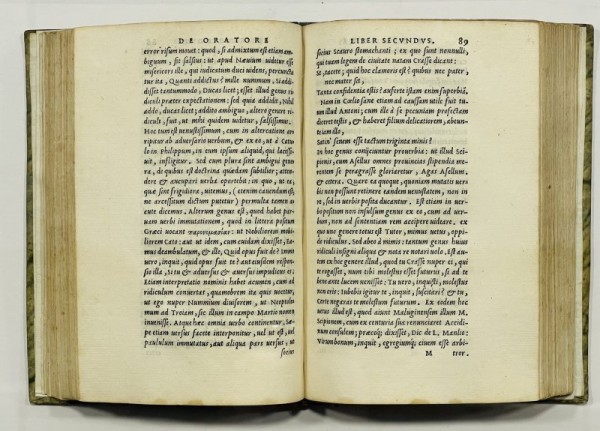 DE ORATORE
error risum mouet: quod, si admixtum est etiam am
biguum, fit salsius: ut apud Næuium uidetur esse
misericors ille, qui iudicatum duci uidens, percuncta
tur ita, Quanti addictus? mille nummum, si addi
disset tantummodo, Ducas licet; esset illud genus ri
diculi præter expectationem: sed quia addidit, Nihil
addo, ducas licet; addito ambiguo, altero genere ri
diculi, fuit, ut mihi quidem uidetur, salsissimus.
Hoc tum est uenustissimum, cum in altercatione ar
ripitur ab aduersario uerbum, & ex eo, ut à Catu
lo in Philippum, in eum ipsum aliquid, qui lacessi
uit, infligitur. Sed cum plura sint ambigui gene
ra, de quibus est doctrina quædam subtilior; atten
dere & aucupari uerba oportebit: in quo, ut ea,
quæ sint frigidiora, uitemus, (etenim cauendum est,
ne arcessitum dictum putetur) permulta tamen a-
cute dicemus. Alterum genus est, quod habet par-
uam uerbi immutationem, quod in littera positum
Græci uocant παρονομασίαν: ut Nobiliorem mobi
liorem Cato: aut ut idem, cum cuidam dixisset, Ea-
mus deambulatum, & ille, Quid opus fuit de? Immo
uero, inquit, quid opus fuit te? aut eiusdem respon-
sio illa, Si tu & aduersus & auersus impudicus es.
Etiam interpretatio nominis habet acumen, cum ad
ridiculum conuertas, quamobrem ita quis uocetur,
ut ego nuper Nummium diuisorem, ut Neoptole
mum ad Troiam, sic illum in campo Martio nomen
inuenisse. Atque hæc omnia uerbo continentur. Sæ-
pe etiam uersus facete interponitur, uel ut est, uel
paululum immutatus, aut aliqua pars uersus, ut
LIBER SECVNDVS. 89
Scauro stomachanti; ex quo sunt nonnulli,
qui tuam legem de ciuitate natam Crasse dicant:
St, tacete; quid hoc clamoris est? quibus nec pater,
nec mater sit,
Tanta confidentia estis? auferte istam enim superbiã.
Nam in Coelio sane etiam ad causam utile fuit tu-
um illud Antoni; cum ille à se pecuniam profectam
diceret testis, & haberet filium delicatiorem, abeun-
te iam illo,
Satin' senem esse tactum triginta minis?
In hoc genus coniiciuntur prouerbia: ut illud Sci-
pionis, cum Asellus omnes prouincias stipendia me-
rentem se peragrasse gloriaretur, Agas Asellum,
& cetera. Quare ea quoque, quoniam mutatis uer-
bis non possunt retinere eandem uenustatem, non in
re, sed in uerbis posita ducantur. Est etiam in uer-
bo positum non insulsum genus ex eo, cum ad uer-
bum, non ad sententiam rem accipere uideare. ex
quo uno genere totus est Tutor, mimus uetus, oppi-
do ridiculus. Sed abeo à mimis: tantum genus huius
ridiculi insigni aliqua & nota re notari uolo. Est au-
tem ex hoc genere illud, quod tu Crasse nuper ei, qui
te rogasset, num tibi molestus esset futurus, si ad te
bene ante lucem uenisset: Tu uero, inquisti, molestus
non eris: Iubebis igitur te, inquit, suscitari? & tu,
Certe negaras te molestum futurum. Ex eodem hoc
uetus illud est, quod aiunt Maluginensem illum M.
Scipionem, cum ex centuria sua renunciaret Accidi-
num consulem; præcoq; dixisset, Dic de L. Manlio:
Virum bonum, inquit, egregiumq; ciuem esse arbi-
M tror.